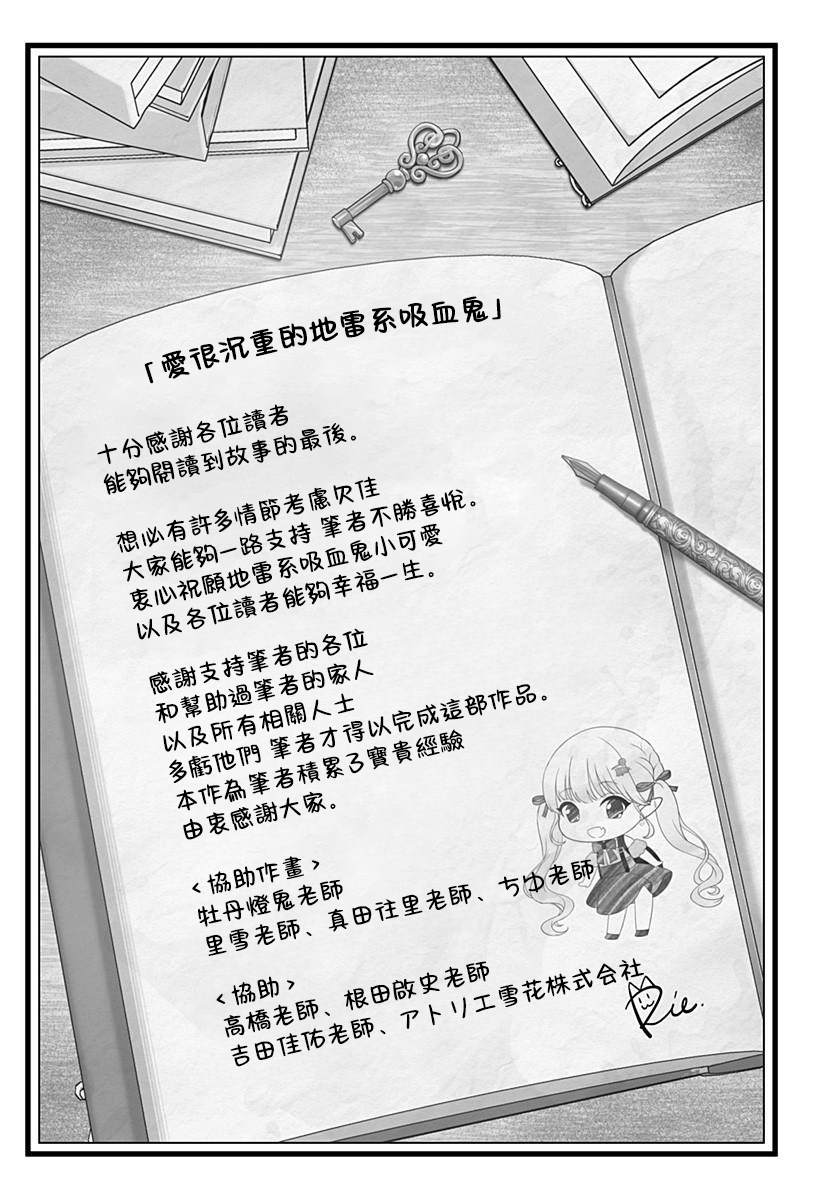 「愛很沉重的地雷系吸血鬼」
十分感謝各位讀者
能夠閱讀到故事的最後。
想必有許多情節考慮欠佳
大家能夠一路支持 筆者不勝喜悅。
衷心祝願地雷系吸血鬼小可愛
以及各位讀者能夠幸福一生。
感謝支持筆者的各位
和幫助過筆者的家人
以及所有相關人士
多虧他們 筆者才得以完成這部作品。
本作為筆者積累了寶貴經驗
由衷感謝大家。
<協助作畫>
牡丹燈鬼老師
里雪老師、真田往里老師、ちゆ老師
<協助>
高橋老師、根田啟史老師
吉田佳佑老師、アトリエ雪花株式会社
Rie.